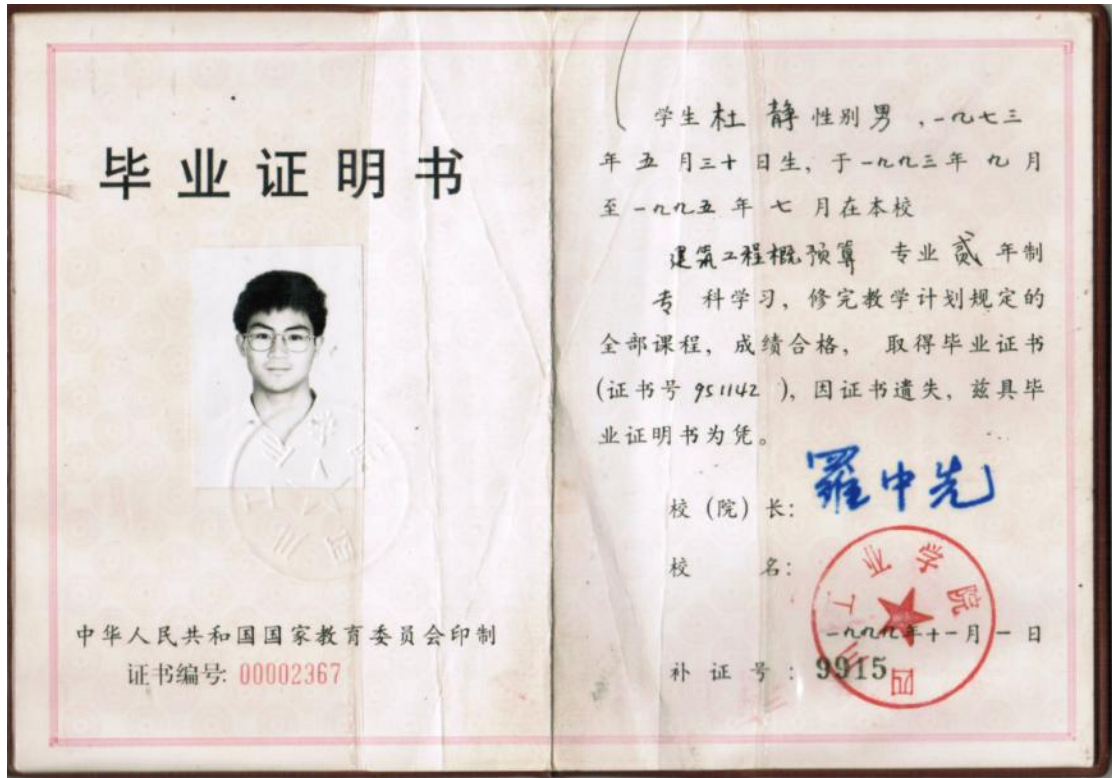 毕业证明书
中华人民共和国国家教育委员会印制
证书编号: 00002367
学生杜 静性别男,一九七三
年五月三十日生,于一九九三年九月
至一九九五年七月在本校
建筑工程概预算 专业贰年制
专科学习,修完教学计划规定的
全部课程,成绩合格, 取得毕业证书
(证书号951142 ),因证书遗失,兹具毕
业证明书为凭。
校(院)长: 羅中先
校 名:
四川工业学院
一九九九年十一月一日
补证号:9915